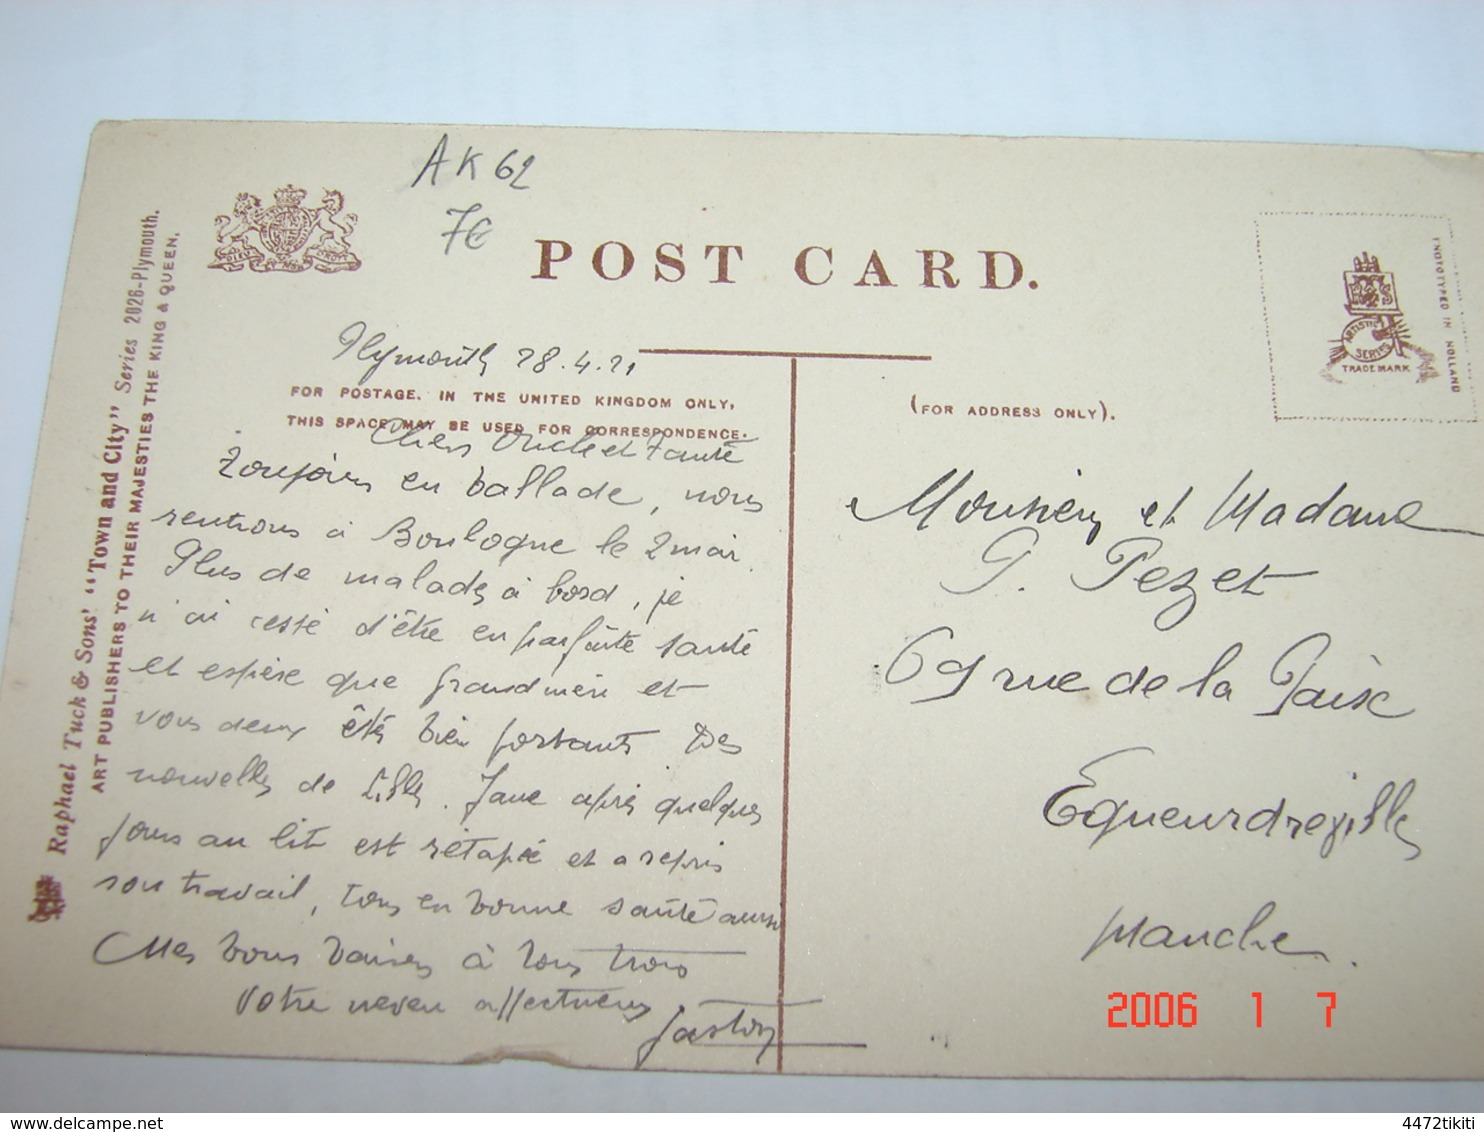 AK 62
7€
POST CARD.
Raphael Tuck & Sons' "Town and City" Series 2026-Plymouth.
ART PUBLISHERS TO THEIR MAJESTIES THE KING & QUEEN.
Plymouth 28.4.21
FOR POSTAGE, IN THE UNITED KINGDOM ONLY,
THIS SPACE MAY BE USED FOR CORRESPONDENCE.
(FOR ADDRESS ONLY).
ARTISTIC
SERIES
TRADE MARK
PHOTOTYPED IN HOLLAND
Chers Oncle et Tante
Toujours en ballade, nous
rentrons à Boulogne le 2 mai.
Plus de malades à bord, je
n'ai cessé d'être en parfaite santé
et espère que grandmère et
vous deux êtes bien portants Des
nouvelles de Lille. Jane après quelques
jours au lit est rétapée et a repris
son travail, tous en bonne santé aussi
Mes bons baisers à tous trois
Votre neveu affectueux
Gaston
Monsieur et Madame
P. Pezet
69 rue de la Paix
Equeurdreville
Manche.
2006 1 7
www.delcampe.net
4472tikiti